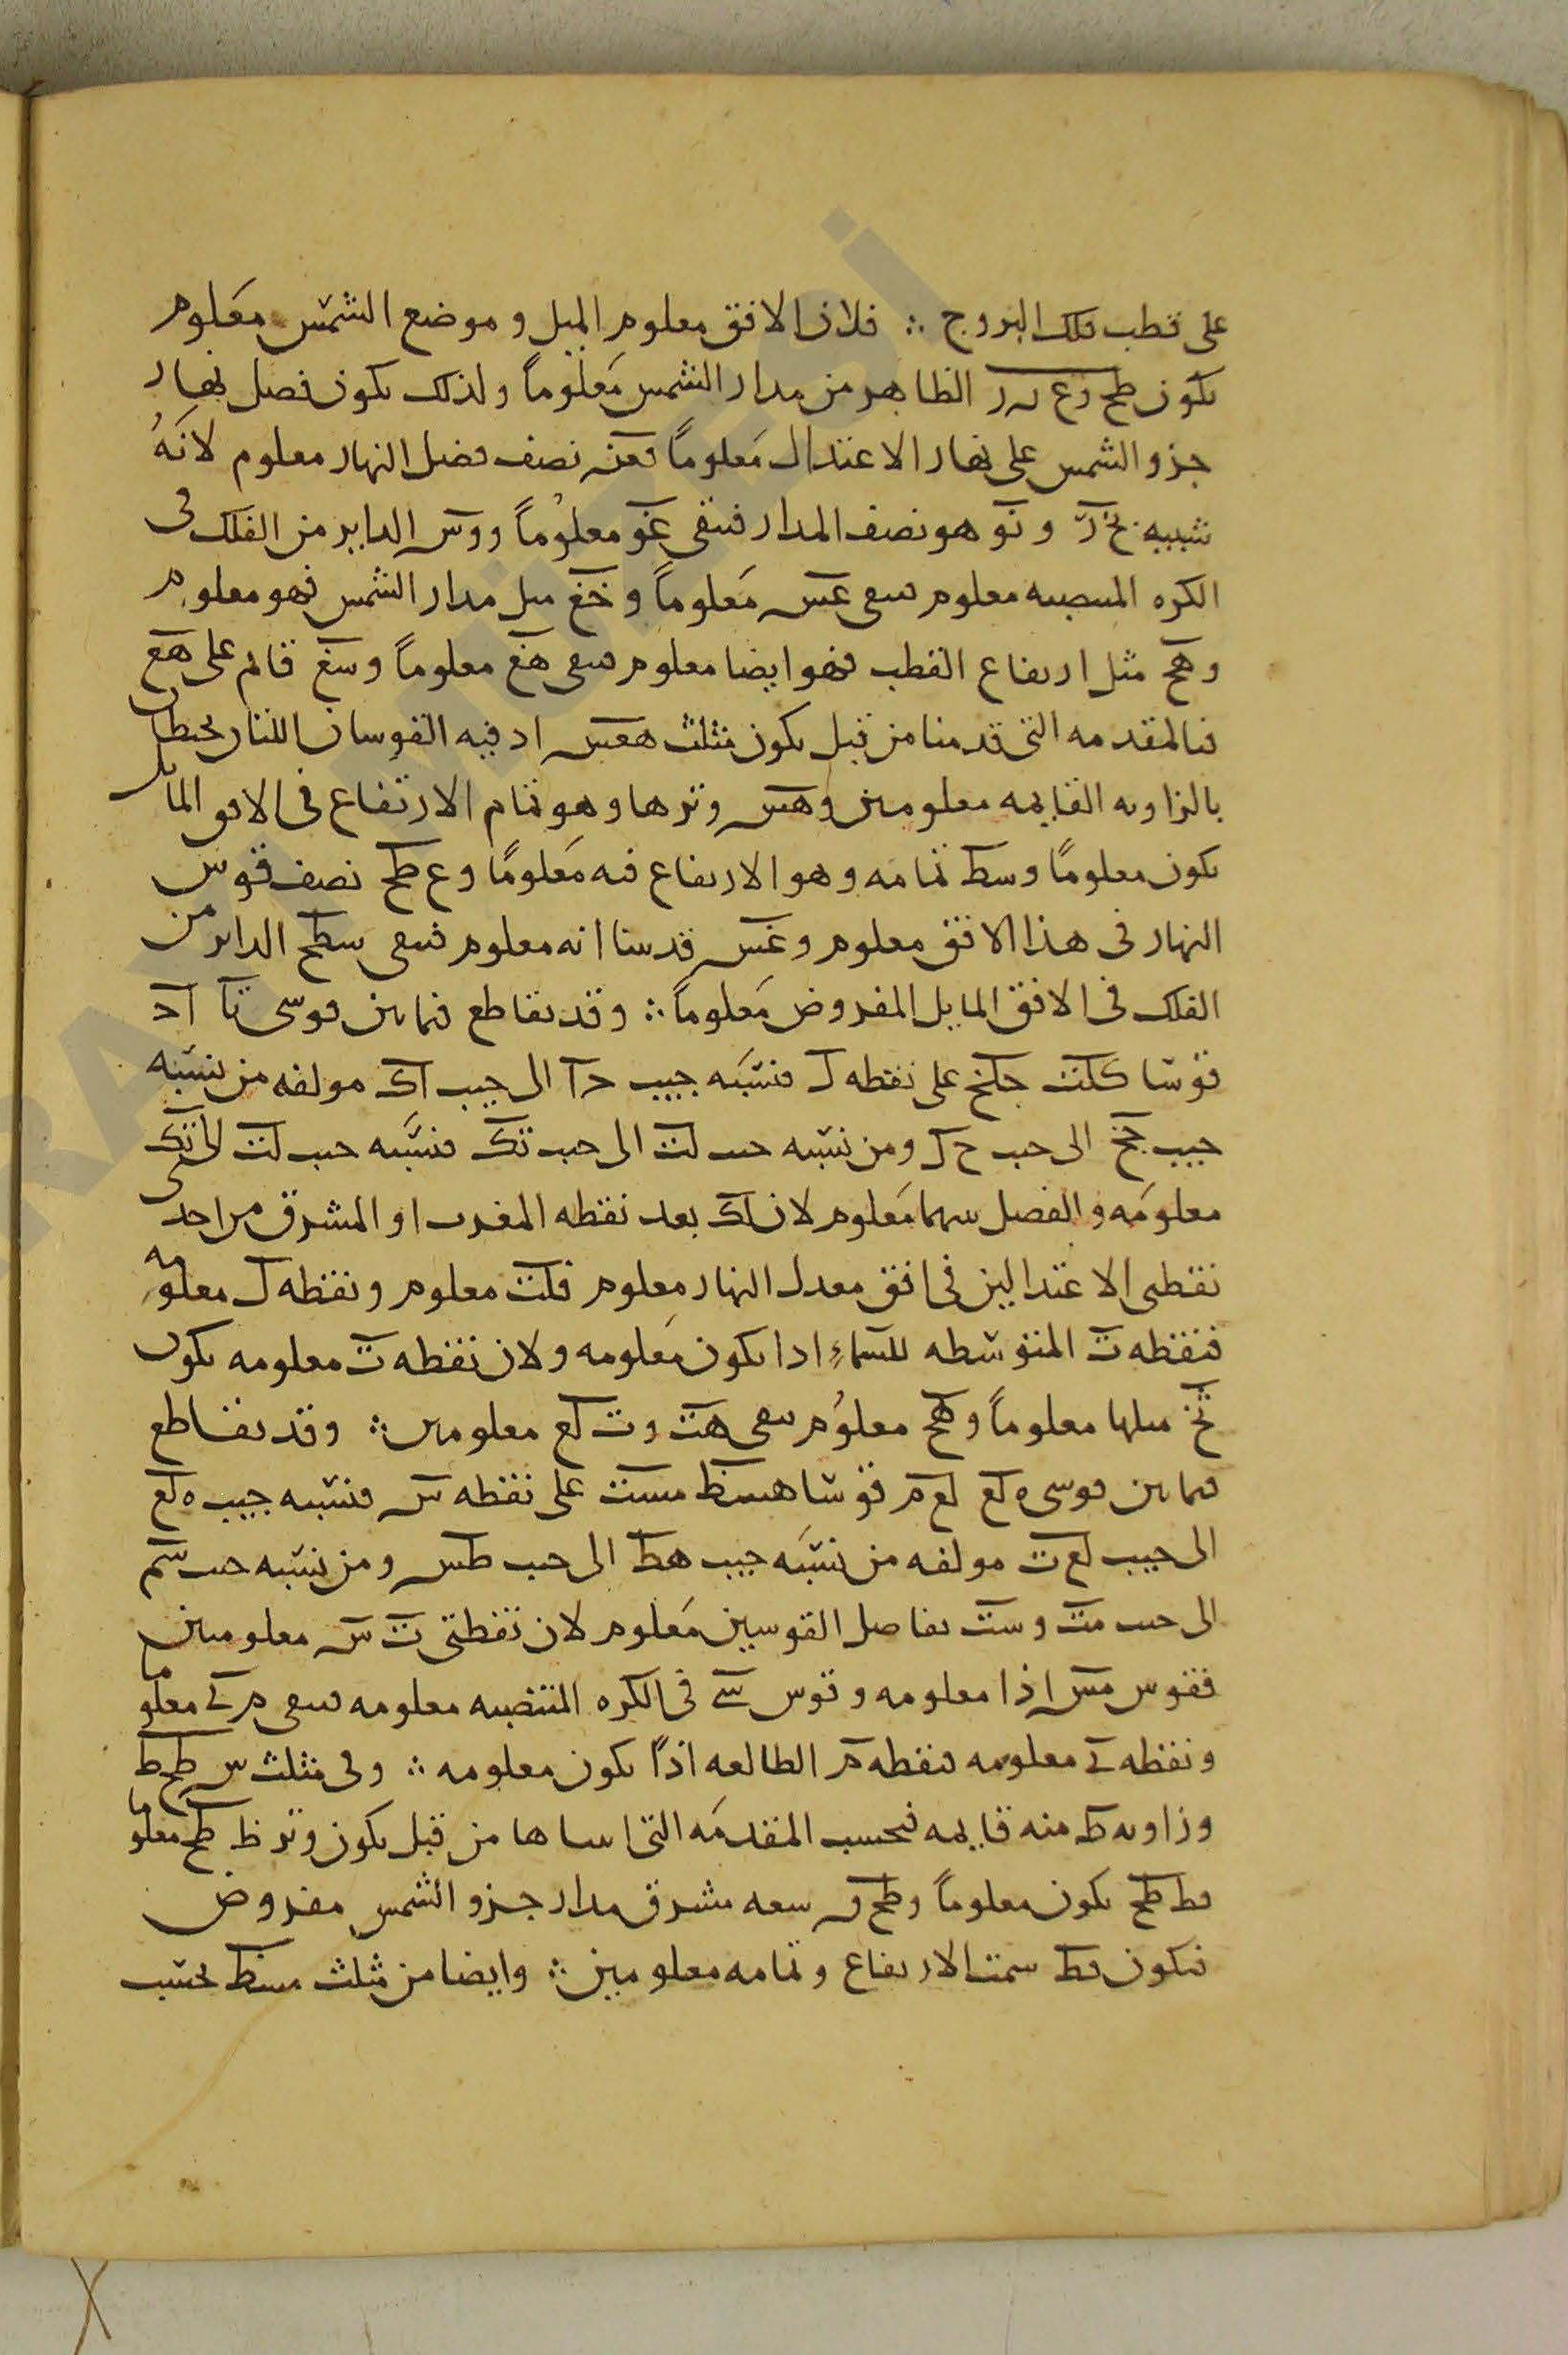 على قطب فلك البروج ∴ فلان الافق معلوم الميل وموضع الشمس معلوم
يكون طح الظاهر من مدار الشمس معلوماً ولذلك يكون فصل نهار
جزو الشمس على نهار الاعتدال معلوماً نصف فضل النهار معلوم لانه
شبيه هو نصف المدار فيبقى معلوماً الداير من الفلك فى
الكره المنتصبه معلوم يبقى عس معلوماً و ميل مدار الشمس فهو معلوم
وهح مثل ارتفاع القطب فهو ايضا معلوم يبقى هع معلوماً وسع قائم على هع
فبالمقدمه التى قدمنا من قبل يكون مثلث هعس اذ فيه القوسان اللتان يحيطان
بالزاويه القايمه معلومين وهس وترها وهو تمام الارتفاع فى الافق المايل
يكون معلومًا وسط تمامه وهو الارتفاع فيه معلومًا وع طح نصف قوس
النهار فى هذا الافق معلوم وعس قد بينا انه معلوم فيبقى سطح الداير من
الفلك فى الافق المايل المفروض معلوماً ∴ وقد تقاطع فيما بين قوسى تا اد
قوسا كلت جلخ على نقطه ل فنسبه جيب الى جيب اك مولفه من نسبه
جيب جخ الى جيب خ ل ومن نسبه جيب لت الى جيب تك فنسبه جيب لت الى تك
معلومه والفصل بينهما معلوم لان اك بعد نقطه المغرب او المشرق من احدى
نقطتى الاعتدالين فى افق معدل النهار معلوم فلت معلوم ونقطه ل معلومه
فنقطه ت المتوسطه للسماء اذا يكون معلومه ولان نقطه ت معلومه يكون
تخ ميلها معلوماً وهح معلوم يبقى هت وت لع معلومين ∴ وقد تقاطع
فيما بين قوسى ه لع لع م قوسا هسط مست على نقطه س فنسبه جيب ه لع
الى جيب لع ت مولفه من نسبه جيب هط الى جيب طس ومن نسبه جيب سم
الى جيب مت وست تفاصل القوسين معلوم لان نقطتى ت س معلومتين
فقوس مس اذا معلومه وقوس سى فى الكره المنتصبه معلومه يبقى م ى معلوما
ونقطه ى معلومه فنقطه م الطالعه اذًا يكون معلومه ∴ وفى مثلث س طح ط
وزاويه ط منه قايمه فبحسب المقدمه التى من قبل يكون وتر ط طح معلوما
طح يكون معلوماً وطح ق سعه مشرق مدار جزو الشمس مفروض
فيكون قط سمت الارتفاع وتمامه معلومين ∴ وايضا من مثلث مسط بحسب